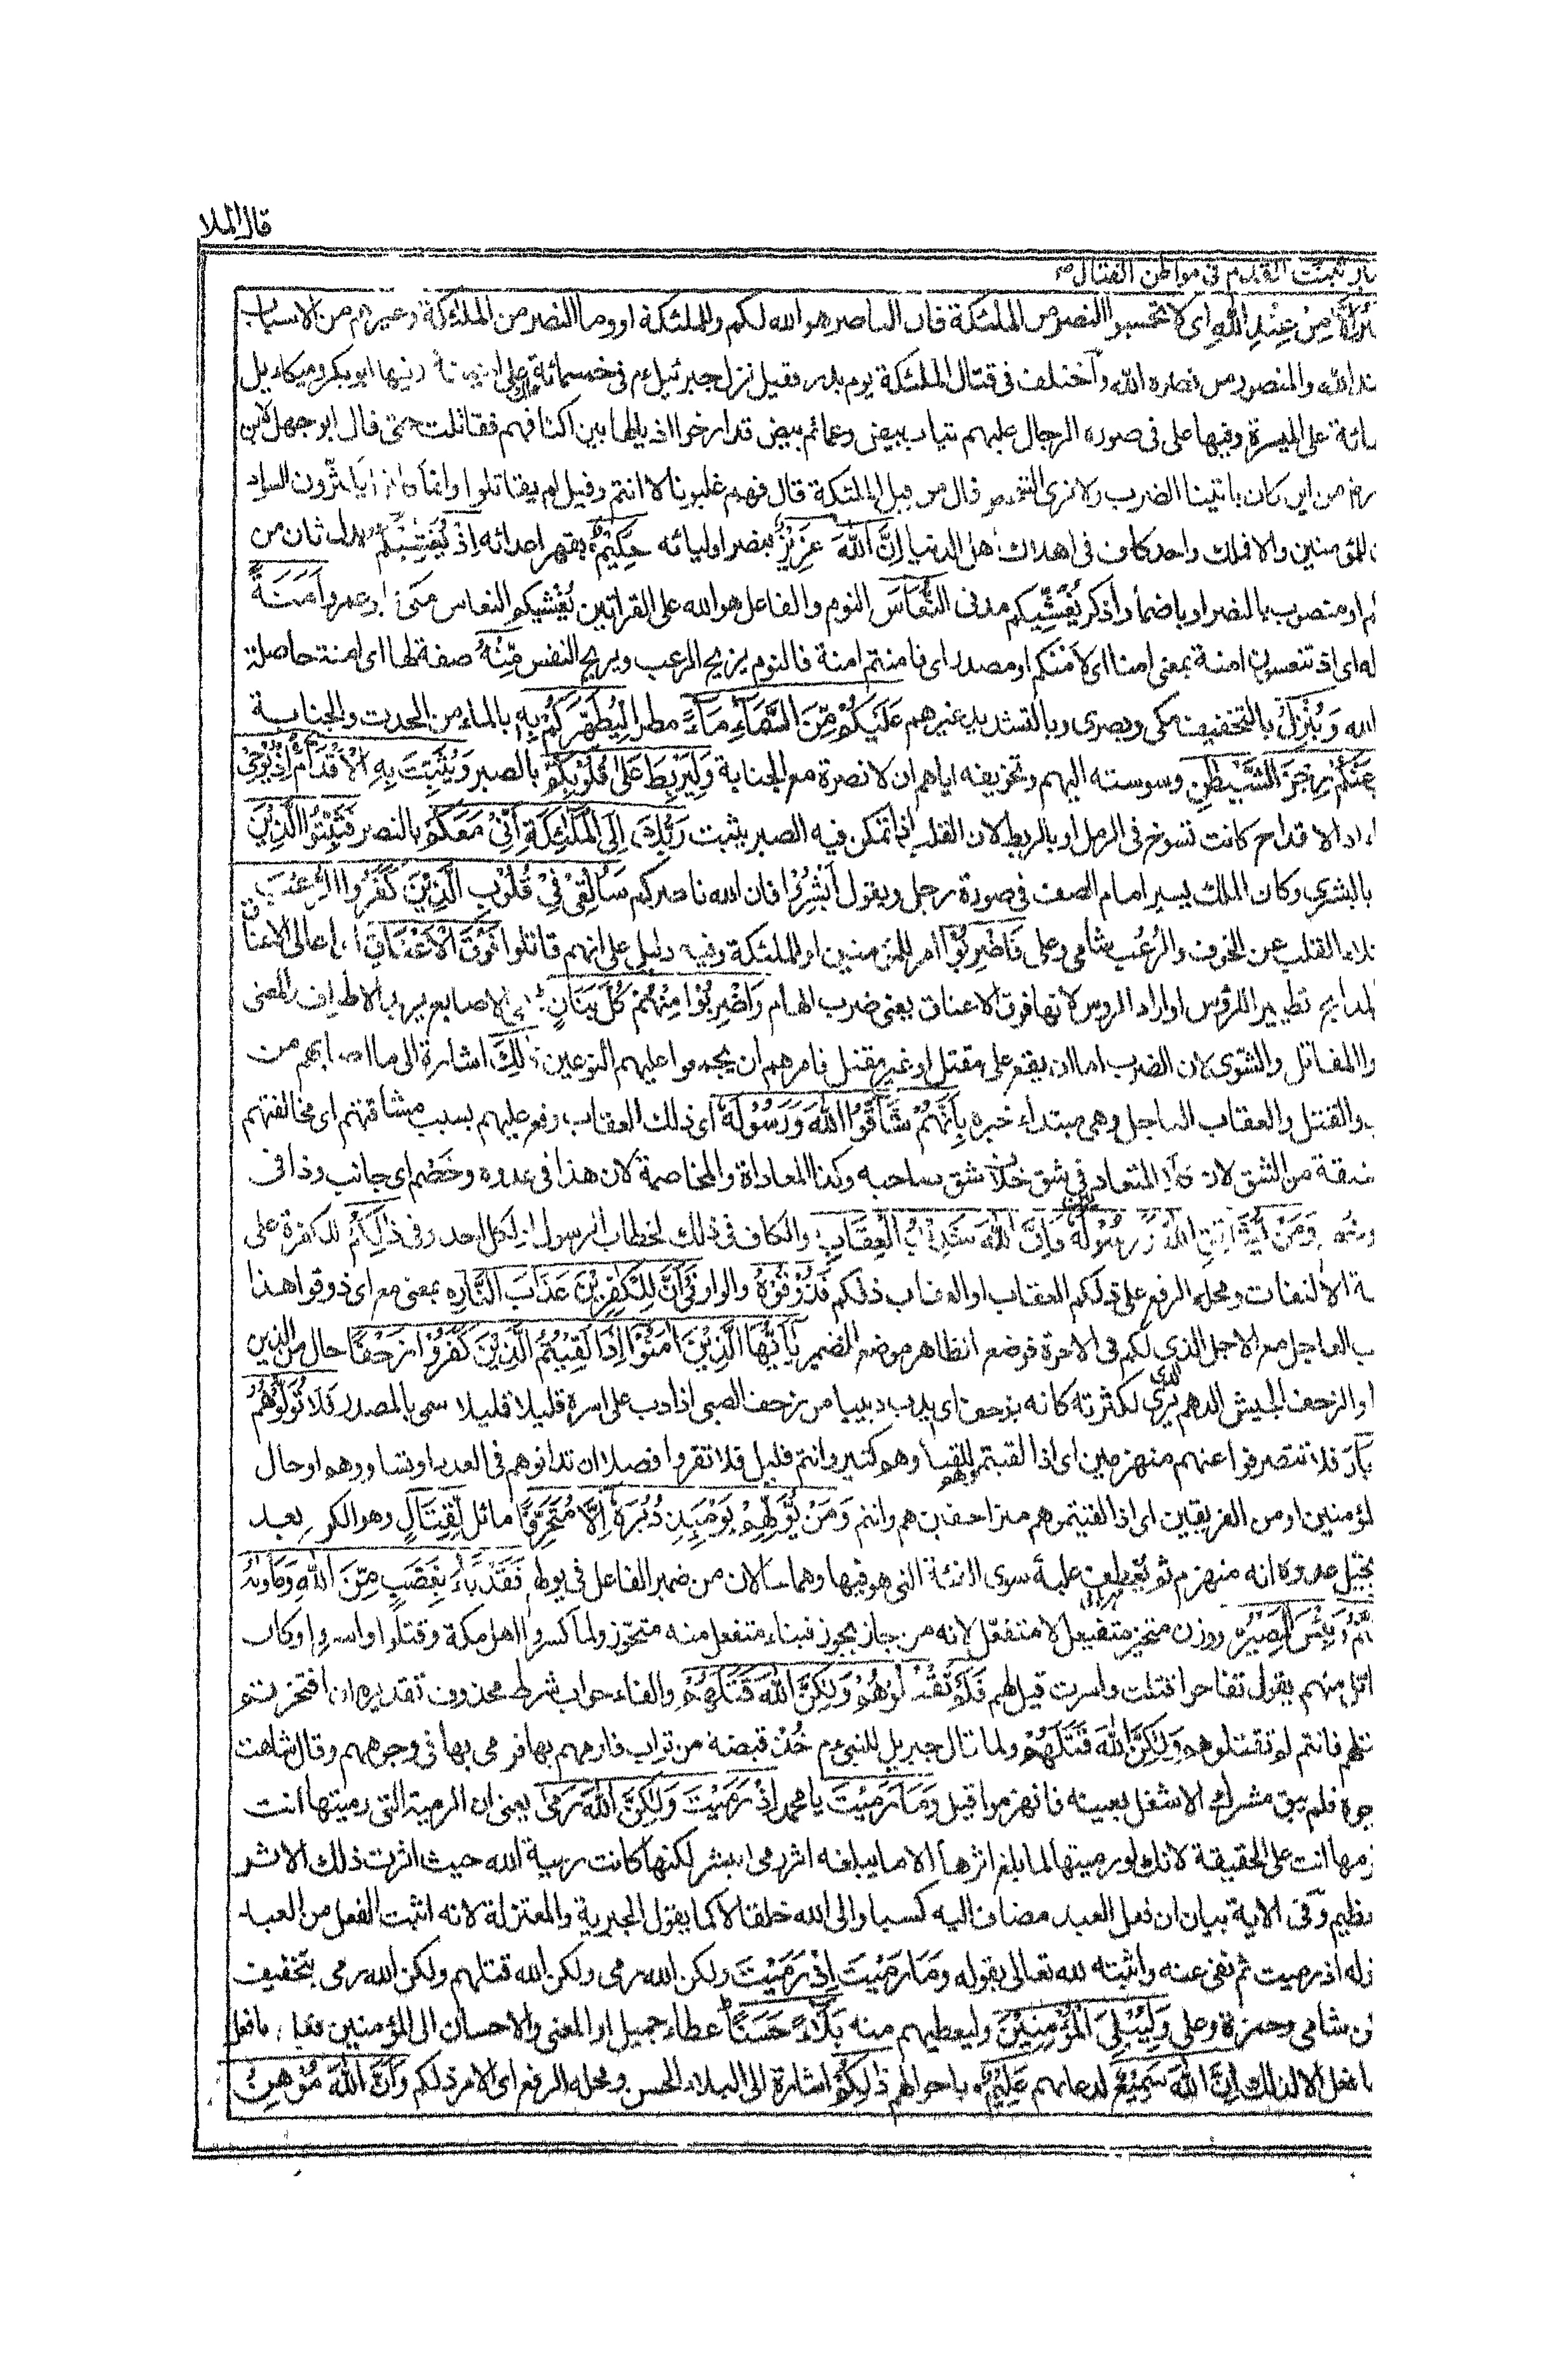 قال الملا
تثبت القدم فى مواطن القتال
الا من عند الله اى لا تحسبوا النصر من الملئكة فان الناصر هو الله لكم وللملئكة او وما النصر من الملئكة وغيرهم من الاسباب
عند الله والمنصور من نصره الله وآختلف فى قتال الملئكة يوم بدر فقيل نزل جبرئيل ءم فى خمسمائة على الميمنة وفيها ابو بكر وميكائيل
مائة على الميسرة وفيها على فى صورة الرجال عليهم ثياب بيض وعمائم بيض قد ارخوا اذيالها بين اكتافهم فقاتلت حتى قال ابو جهل لابن
من اين كان ياتينا الضرب ولا نرى الشخص قال من قبل الملئكة قال فهم غلبونا لا انتم وقيل لم يقاتلوا وانما كانوا يكثرون السواد
للمؤمنين والا فملك واحد كاف فى اهلاك اهل الدنيا اِنَّ اللّٰهَ عَزِيْزٌ بنصر اوليائه حَكِيْمٌ بقهر اعدائه اِذْ يُغَشِّيْكُمُ بدل ثان من
او منصوب بالنصر او باضمار اذكر يُغْشِيكم مدنى النُّعَاسَ النوم والفاعل هو الله على القراتين يَغْشٰىكم النعاس مكى وابو عمرو اَمَنَةً
له اى اذ تنعسون امنة بمعنى امنا اى لامنكم او مصدر اى فامنتم امنة فالنوم يزيح الرعب ويريح النفس مِّنْهُ صفة لها اى امنة حاصلة
الله وَيُنَزِّلُ بالتخفيف مكى وبصرى وبالتشديد غيرهم عَلَيْكُمْ مِّنَ السَّمَآءِ مَآءً مطرا لِّيُطَهِّرَكُمْ بِهٖ بالماء من الحدث والجنابة
عَنْكُمْ رِجْزَ الشَّيْطٰنِ وسوسته اليهم وتخويفه اياهم ان لا نصرة مع الجنابة وَلِيَرْبِطَ عَلٰى قُلُوْبِكُمْ بالصبر وَيُثَبِّتَ بِهِ الْاَقْدَامَ اِذْ يُوْحِىْ
الاقدام كانت تسوخ فى الرمل او بالربط لان القلب اذا تمكن فيه الصبر يثبت رَبُّكَ اِلَى الْمَلٰٓئِكَةِ اَنِّىْ مَعَكُمْ بالنصر فَثَبِّتُوا الَّذِيْنَ
بالبشرى وكان الملك يسير امام الصف فى صورة رجل ويقول اَبْشِرُوْا فان الله ناصركم سَاُلْقِىْ فِىْ قُلُوْبِ الَّذِيْنَ كَفَرُوا الرُّعْبَ
القلب من الخوف والرُعُب شامى وعلى فَاضْرِبُوْا امر للمؤمنين او للملئكة وفيه دليل على انهم قاتلوا فَوْقَ الْاَعْنَاقِ اى اعالى الاعناق
المذابح تطييرا للرؤس او اراد الروس لانها فوق الاعناق يعنى ضرب الهام وَاضْرِبُوْا مِنْهُمْ كُلَّ بَنَانٍ اى الاصابع يريد الاطراف والمعنى
والمقاتل والشوى لان الضرب اما ان يقع على مقتل او غير مقتل فامرهم ان يجمعوا عليهم النوعين ذٰلِكَ اشارة الى ما اصابهم من
والقتل والعقاب العاجل وهى مبتداء خبره بِاَنَّهُمْ شَآقُّوا اللّٰهَ وَرَسُوْلَهٗ اى ذلك العقاب وقع عليهم بسبب مشاقتهم اى مخالفتهم
مشتقة من الشق لان كلا المتعاديين فى شق خلاف شق صاحبه وكذا المعاداة والمخاصمة لان هذا فى عدوه وخَصْم اى جانب وذا فى
وَمَنْ يُّشَاقِقِ اللّٰهَ وَرَسُوْلَهٗ فَاِنَّ اللّٰهَ شَدِيْدُ الْعِقَابِ والكاف فى ذلك لخطاب الرسول او لكل احد وفى ذٰلِكُمْ للكفرة على
الالتفات ومحله الرفع على ذلكم العقاب او العقاب ذلكم فَذُوْقُوْهُ والواو فى وَاَنَّ لِلْكٰفِرِيْنَ عَذَابَ النَّارِ بمعنى مع اى ذوقوا هذا
العاجل مع الاجل الذى لكم فى الاخرة فوضع الظاهر موضع الضمير يٰٓاَيُّهَا الَّذِيْنَ اٰمَنُوْٓا اِذَا لَقِيْتُمُ الَّذِيْنَ كَفَرُوْا زَحْفًا حال من الذين
او الزحف الجيش الدهم الذى يُرى لكثرته كانه يزحف اى يدب دبيبا من زحف الصبى اذا دب على استه قليلا قليلا سمى بالمصدر فَلَا تُوَلُّوْهُمُ
فلا تنصرفوا عنهم منهزمين اى اذا لقيتموهم للقتال وهم كثير وانتم قليل فلا تفروا فضلا ان تدانوهم فى العدد او تساووهم او حال
المؤمنين او من الفريقين اى اذا لقيتموهم متزاحفين هم وانتم وَمَنْ يُّوَلِّهِمْ يَوْمَئِذٍ دُبُرَهٗٓ اِلَّا مُتَحَرِّفًا مائل لِّقِتَالٍ وهو الكر بعد
يخيل عدوه انه منهزم ثم يعطف عليه سوى الفئة التى هو فيها وهما حالان من ضمير الفاعل فى يولهم فَقَدْ بَآءَ بِغَضَبٍ مِّنَ اللّٰهِ وَمَاْوٰىهُ
جَهَنَّمُ وَبِئْسَ الْمَصِيْرُ ووزن متحيز متفيعل لا متفعّل لانه من حاز يحوز فبناء متفعل منه متحوّز ولما كسروا اهل مكة وقتلوا واسروا وكان
القائل منهم يقول تفاخرا قتلت واسرت قيل لهم فَلَمْ تَقْتُلُوْهُمْ وَلٰكِنَّ اللّٰهَ قَتَلَهُمْ والفاء جواب شرط محذوف تقديره ان افتخرتم
بقتلهم فانتم لم تقتلوهم وَلٰكِنَّ اللّٰهَ قَتَلَهُمْ ولما قال جبريل للنبى ءم خُذْ قبضة من تراب فارمهم بها فرمى بها فى وجوههم وقال شاهت
الوجوه فلم يبق مشرك الا شغل بعينه فانهزموا قيل وَمَا رَمَيْتَ يا محمد اِذْ رَمَيْتَ وَلٰكِنَّ اللّٰهَ رَمٰى يعنى ان الرمية التى رميتها انت
ترمها انت على الحقيقة لانك لو رميتها لما بلغ اثرها الا ما يبلغه اثر رمى البشر لكنها كانت رمية الله حيث اثرت ذلك الاثر
العظيم وفى الاية بيان ان فعل العبد مضاف اليه كسبا والى الله خلقا لا كما يقول الجبرية والمعتزلة لانه اثبت الفعل من العبد
بقوله اذ رميت ثم نفى عنه واثبته لله تعالى بقوله وَمَا رَمَيْتَ اِذْ رَمَيْتَ ولكن الله رمى ولكن الله قتلهم ولكن الله رمى بتخفيف
لكن شامى وحمزة وعلى وَلِيُبْلِىَ الْمُؤْمِنِيْنَ وليعطيهم منه بَلَآءً حَسَنًا عطاء جميلا والمعنى والاحسان الى المؤمنين فعل ما فعل
ما فعل الا لذلك اِنَّ اللّٰهَ سَمِيْعٌ لدعائهم عَلِيْمٌ باحوالهم ذٰلِكُمْ اشارة الى البلاء الحسن ومحله الرفع اى الامر ذلكم وَاَنَّ اللّٰهَ مُوْهِنُ